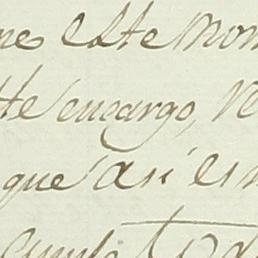 nes este Mon
te encargo, V
que asi es